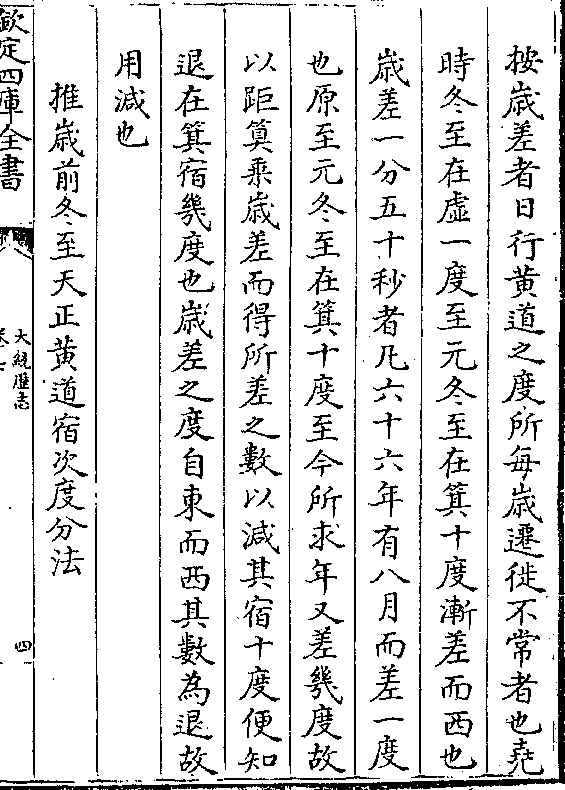 按歳差者日行黄道之度所每歳遷徙不常者也堯
時冬至在虚一度至元冬至在箕十度漸差而西也
歳差一分五十秒者凡六十六年有八月而差一度
也原至元冬至在箕十度至今所求年又差幾度故
以距算乗歳差而得所差之數以減其宿十度便知
退在箕宿幾度也歳差之度自東而西其數為退故
用減也
推歳前冬至天正黄道宿次度分法
欽定四庫全書
大統歴志
四